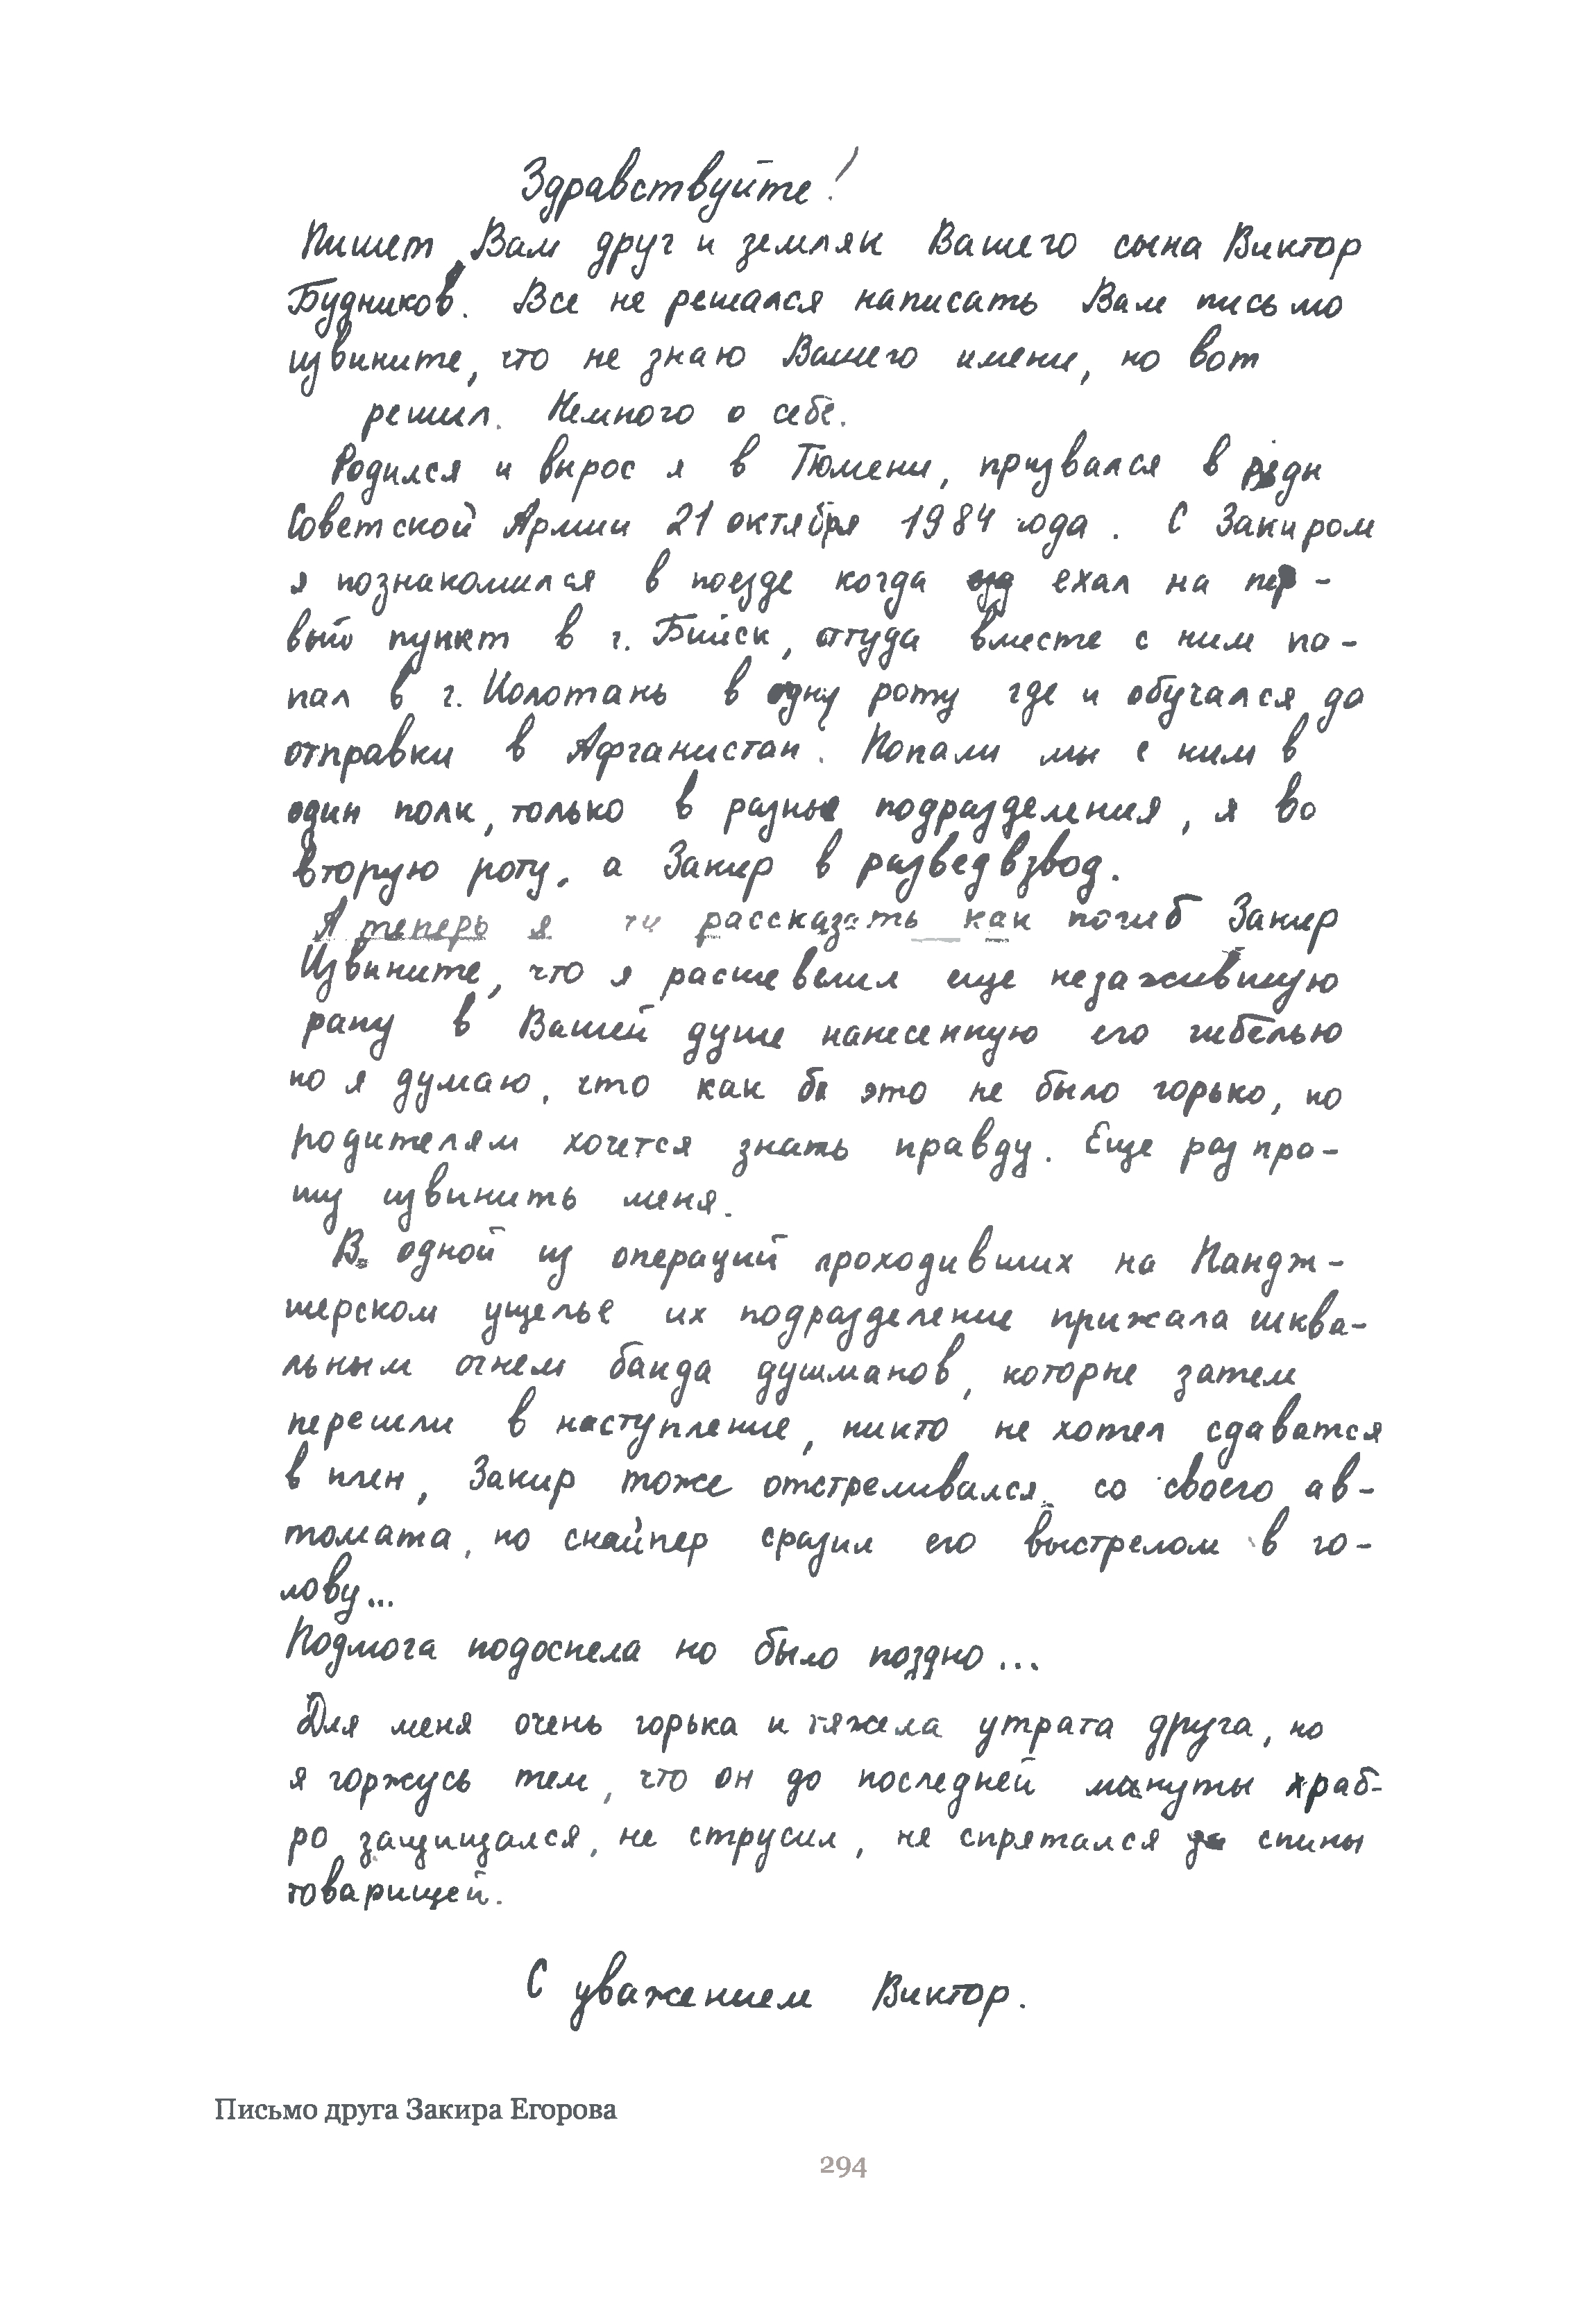 Здравствуйте!
Пишет Вам друг и земляк Вашего сына Виктор
Будников. Все не решался написать Вам письмо
извините, что не знаю Вашего имени, но вот
решил. Немного о себе.
Родился и вырос я в Тюмени, призвался в ряды
Советской Армии 21 октября 1984 года. С Закиром
я познакомился в поезде когда ехал на пер-
вый пункт в г. Бийск, оттуда вместе с ним по-
пал в г. Иолотань в одну роту где и обучался до
отправки в Афганистан. Попали мы с ним в
один полк, только в разные подразделения, я во
вторую роту, а Закир в разведвзвод.
А теперь я рассказать как погиб Закир
Извините, что я расшевелил еще незажившую
рану в Вашей душе нанесенную его гибелью
но я думаю, что как бы это не было горько, но
родителям хочется знать правду. Еще раз про-
шу извинить меня.
В одной из операций проходивших на Пандж-
шерском ущелье их подразделение прижала шква-
льным огнем банда душманов, которые затем
перешли в наступление, никто не хотел сдаватся
в плен, Закир тоже отстреливался со своего ав-
томата, но снайпер сразил его выстрелом в го-
лову...
Подмога подоспела но было поздно...
Для меня очень горька и тяжела утрата друга, но
я горжусь тем, что он до последней минуты храб-
ро защищался, не струсил, не спрятался за спины
товарищей.
С уважением Виктор.
Письмо друга Закира Егорова
294